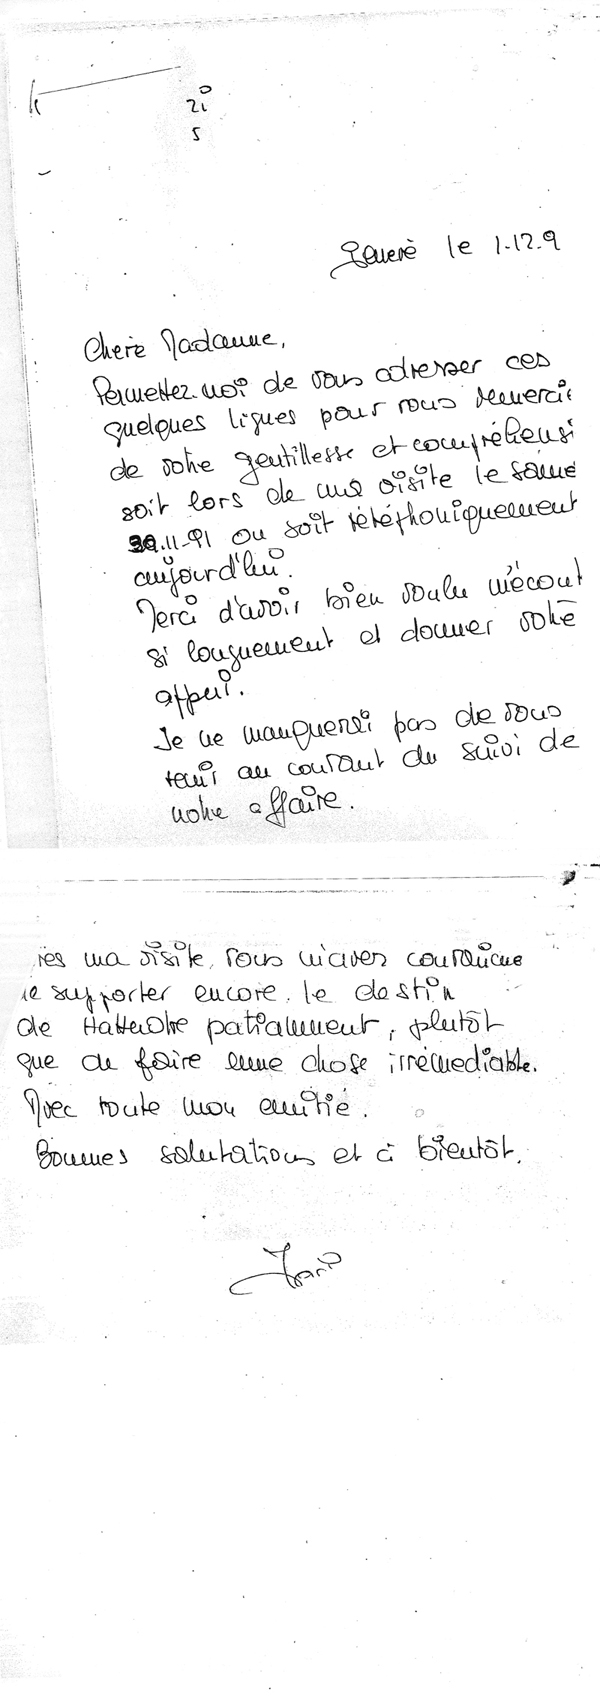 21
5
Genève le 1.12.9
Chère Madame,
Permettez-moi de vous adresser ces
quelques lignes pour vous remerci
de votre gentillesse et compréhensi
soit lors de ma visite le same
30.11.91 ou soit téléphoniquement
aujourd'hui.
Merci d'avoir bien voulu m'écout
si longuement et donner votre
appui.
Je ne manquerai pas de vous
tenir au courant du suivi de
notre affaire.
rès ma visite, vous m'avez convaincue
e supporter encore le destin
de attendre patiamment, plutôt
que de faire une chose irrémediable.
Avec toute mon amitié.
Bonnes salutations et à bientôt.